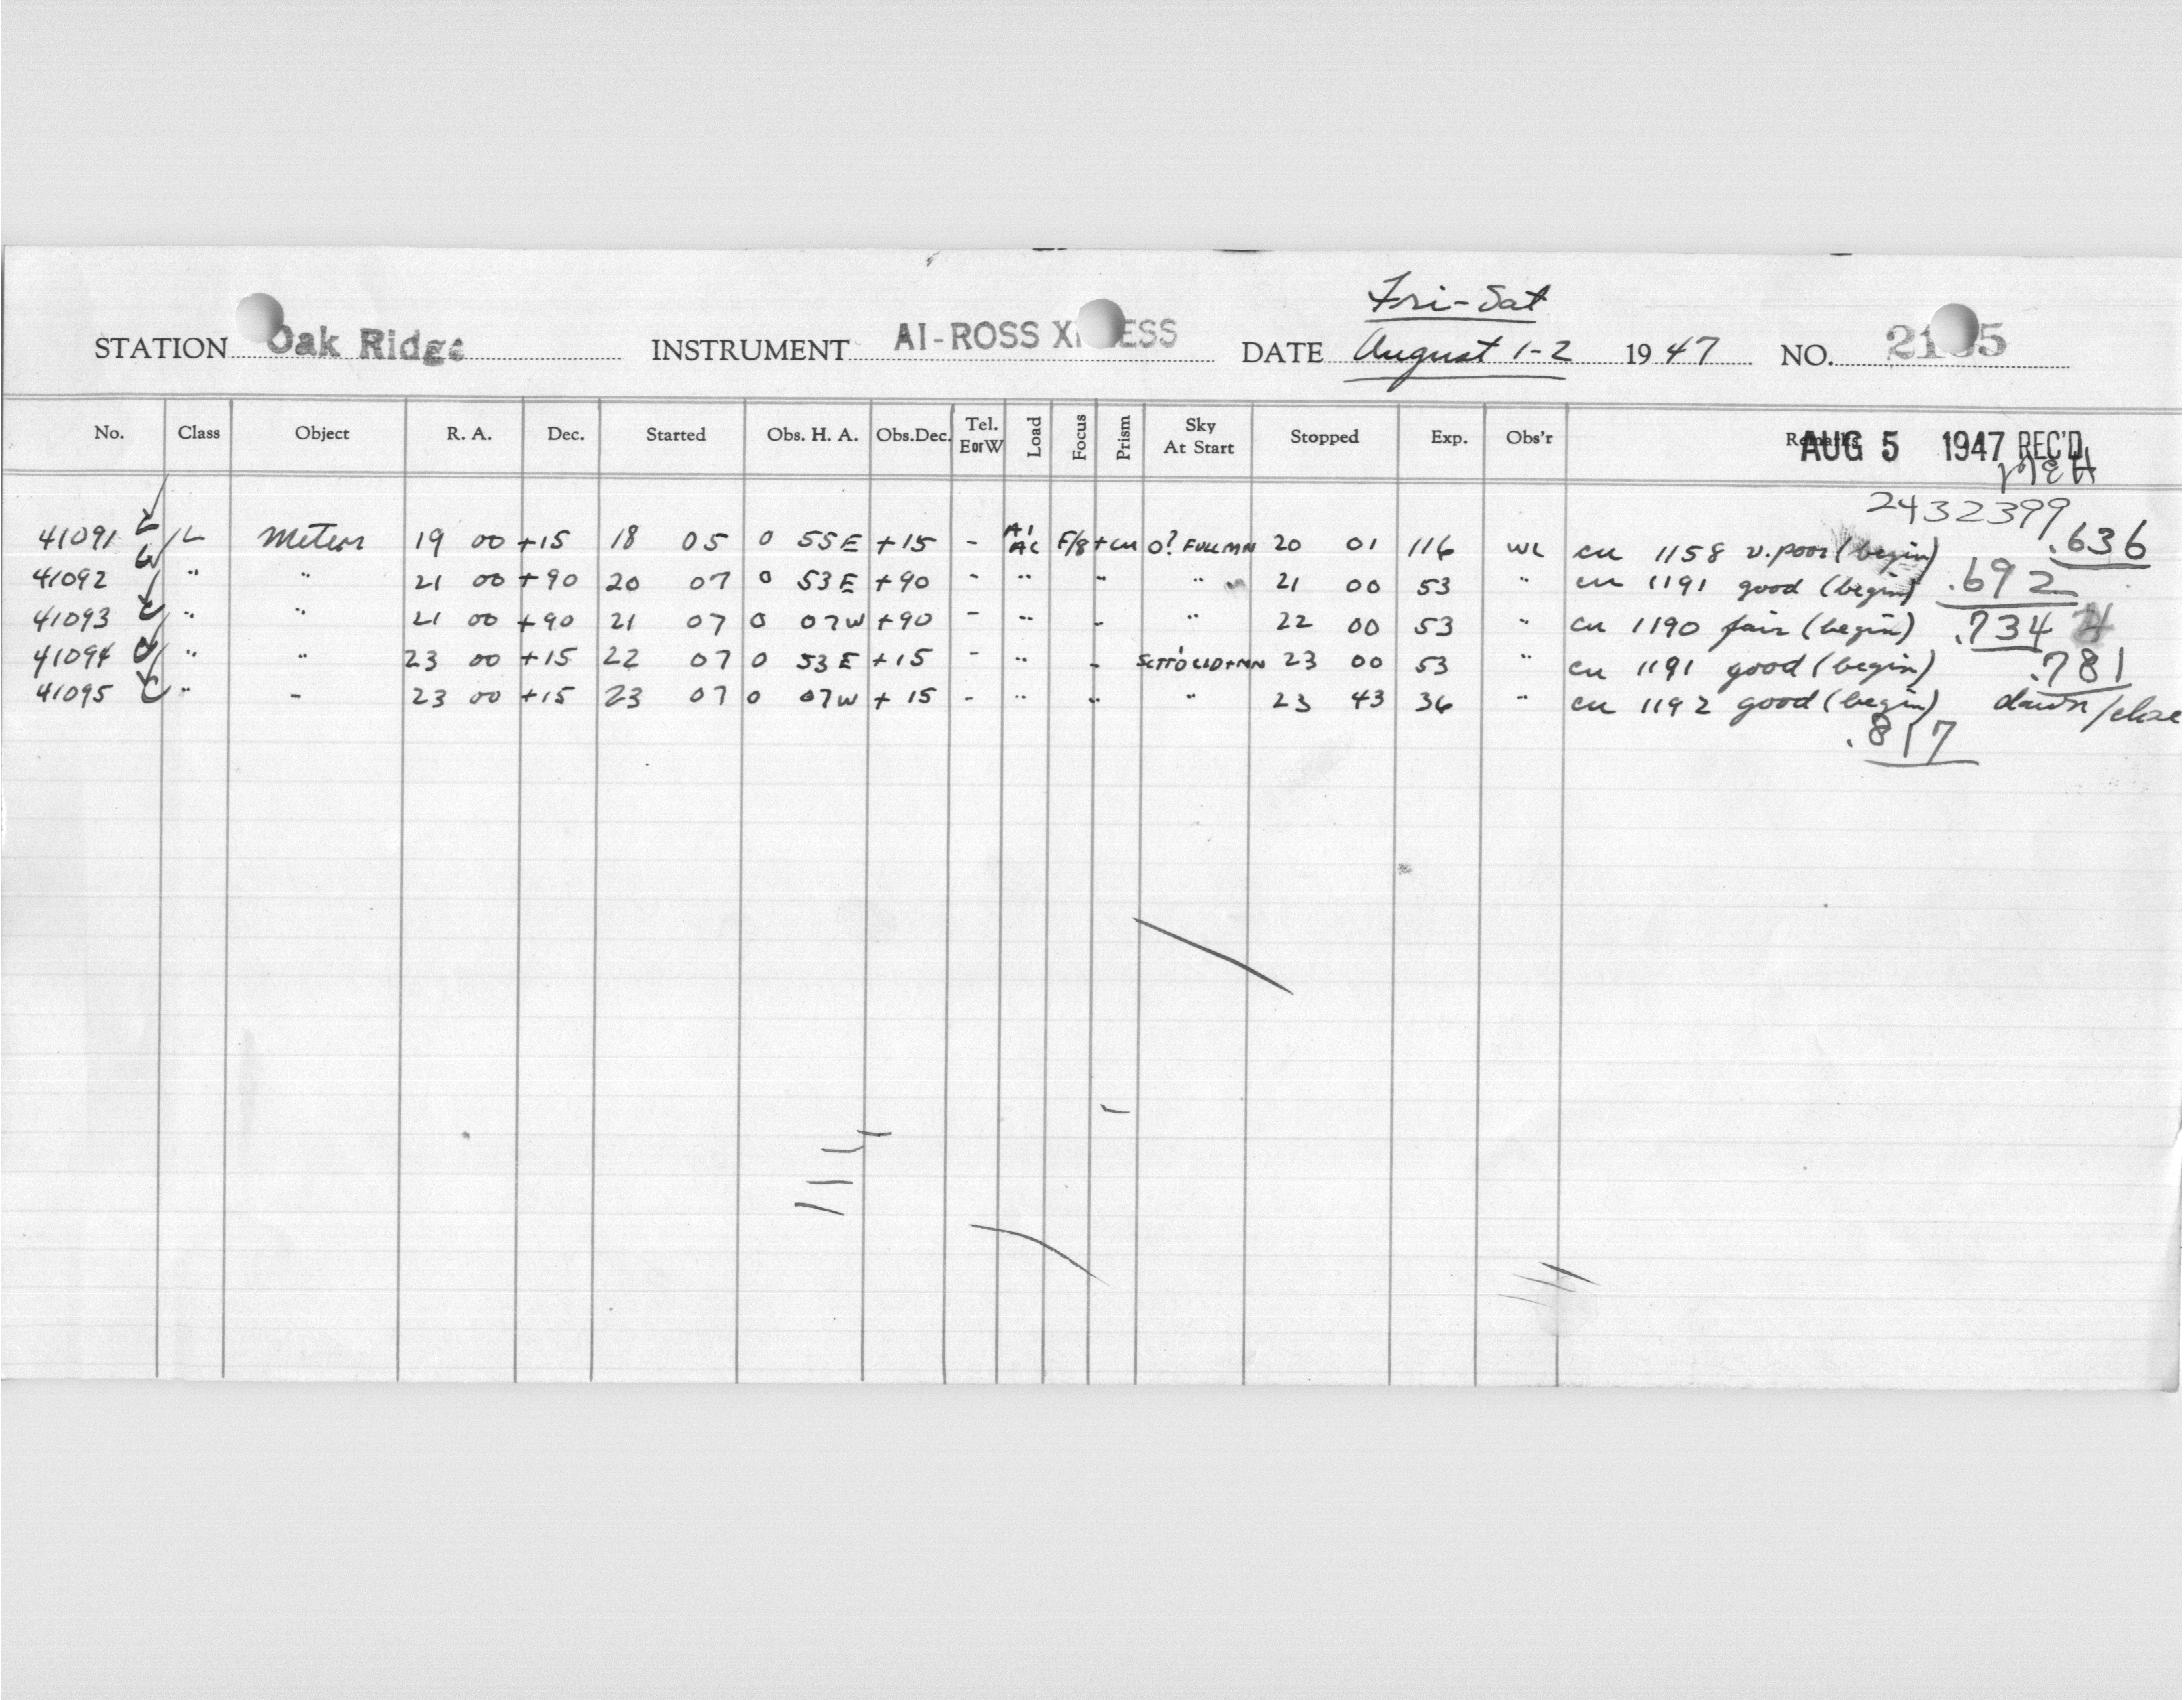 Fri-Sat
STATION Oak Ridge INSTRUMENT AI-ROSS DATE August 1-2 1947 NO.
No. Class Object R. A. Dec. Started Obs. H. A. Obs.Dec. Tel. E or W Load Focus Prism Sky At Start Stopped Exp. Obs'r Remarks
AUG 5 1947 REC'D
MEH
2432399
41091 L Meteor 19 00 +15 18 05 0 55E +15 - AI F/8 0? FULL MN 20 01 116 WL 1158 v.poor (begin) .636
41092 " " 21 00 +90 20 07 0 53E +90 - " - " 21 00 53 " 1191 good (begin) .692
41093 " " 21 00 +90 21 07 0 07W +90 - " - " 22 00 53 " 1190 fair (begin) .734
41094 " " 23 00 +15 22 07 0 53E +15 - " - 23 00 53 " 1191 good (begin) .781
41095 " - 23 00 +15 23 07 0 07W +15 - " " " 23 43 36 " 1192 good (begin) dawn/close
.817